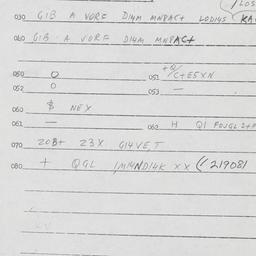 030 GIB A VORF DIHM MNPACT LODI45 KA
040 GIB A VORF DIHM MNPACT
050 0 051 +Q/C+E5XN
052 0 053 —
060 $ NEX
061 — 062 H QI
070 20B+ 23X GI4VE,T
080 + QGL IMI4NDI4K XX (219081